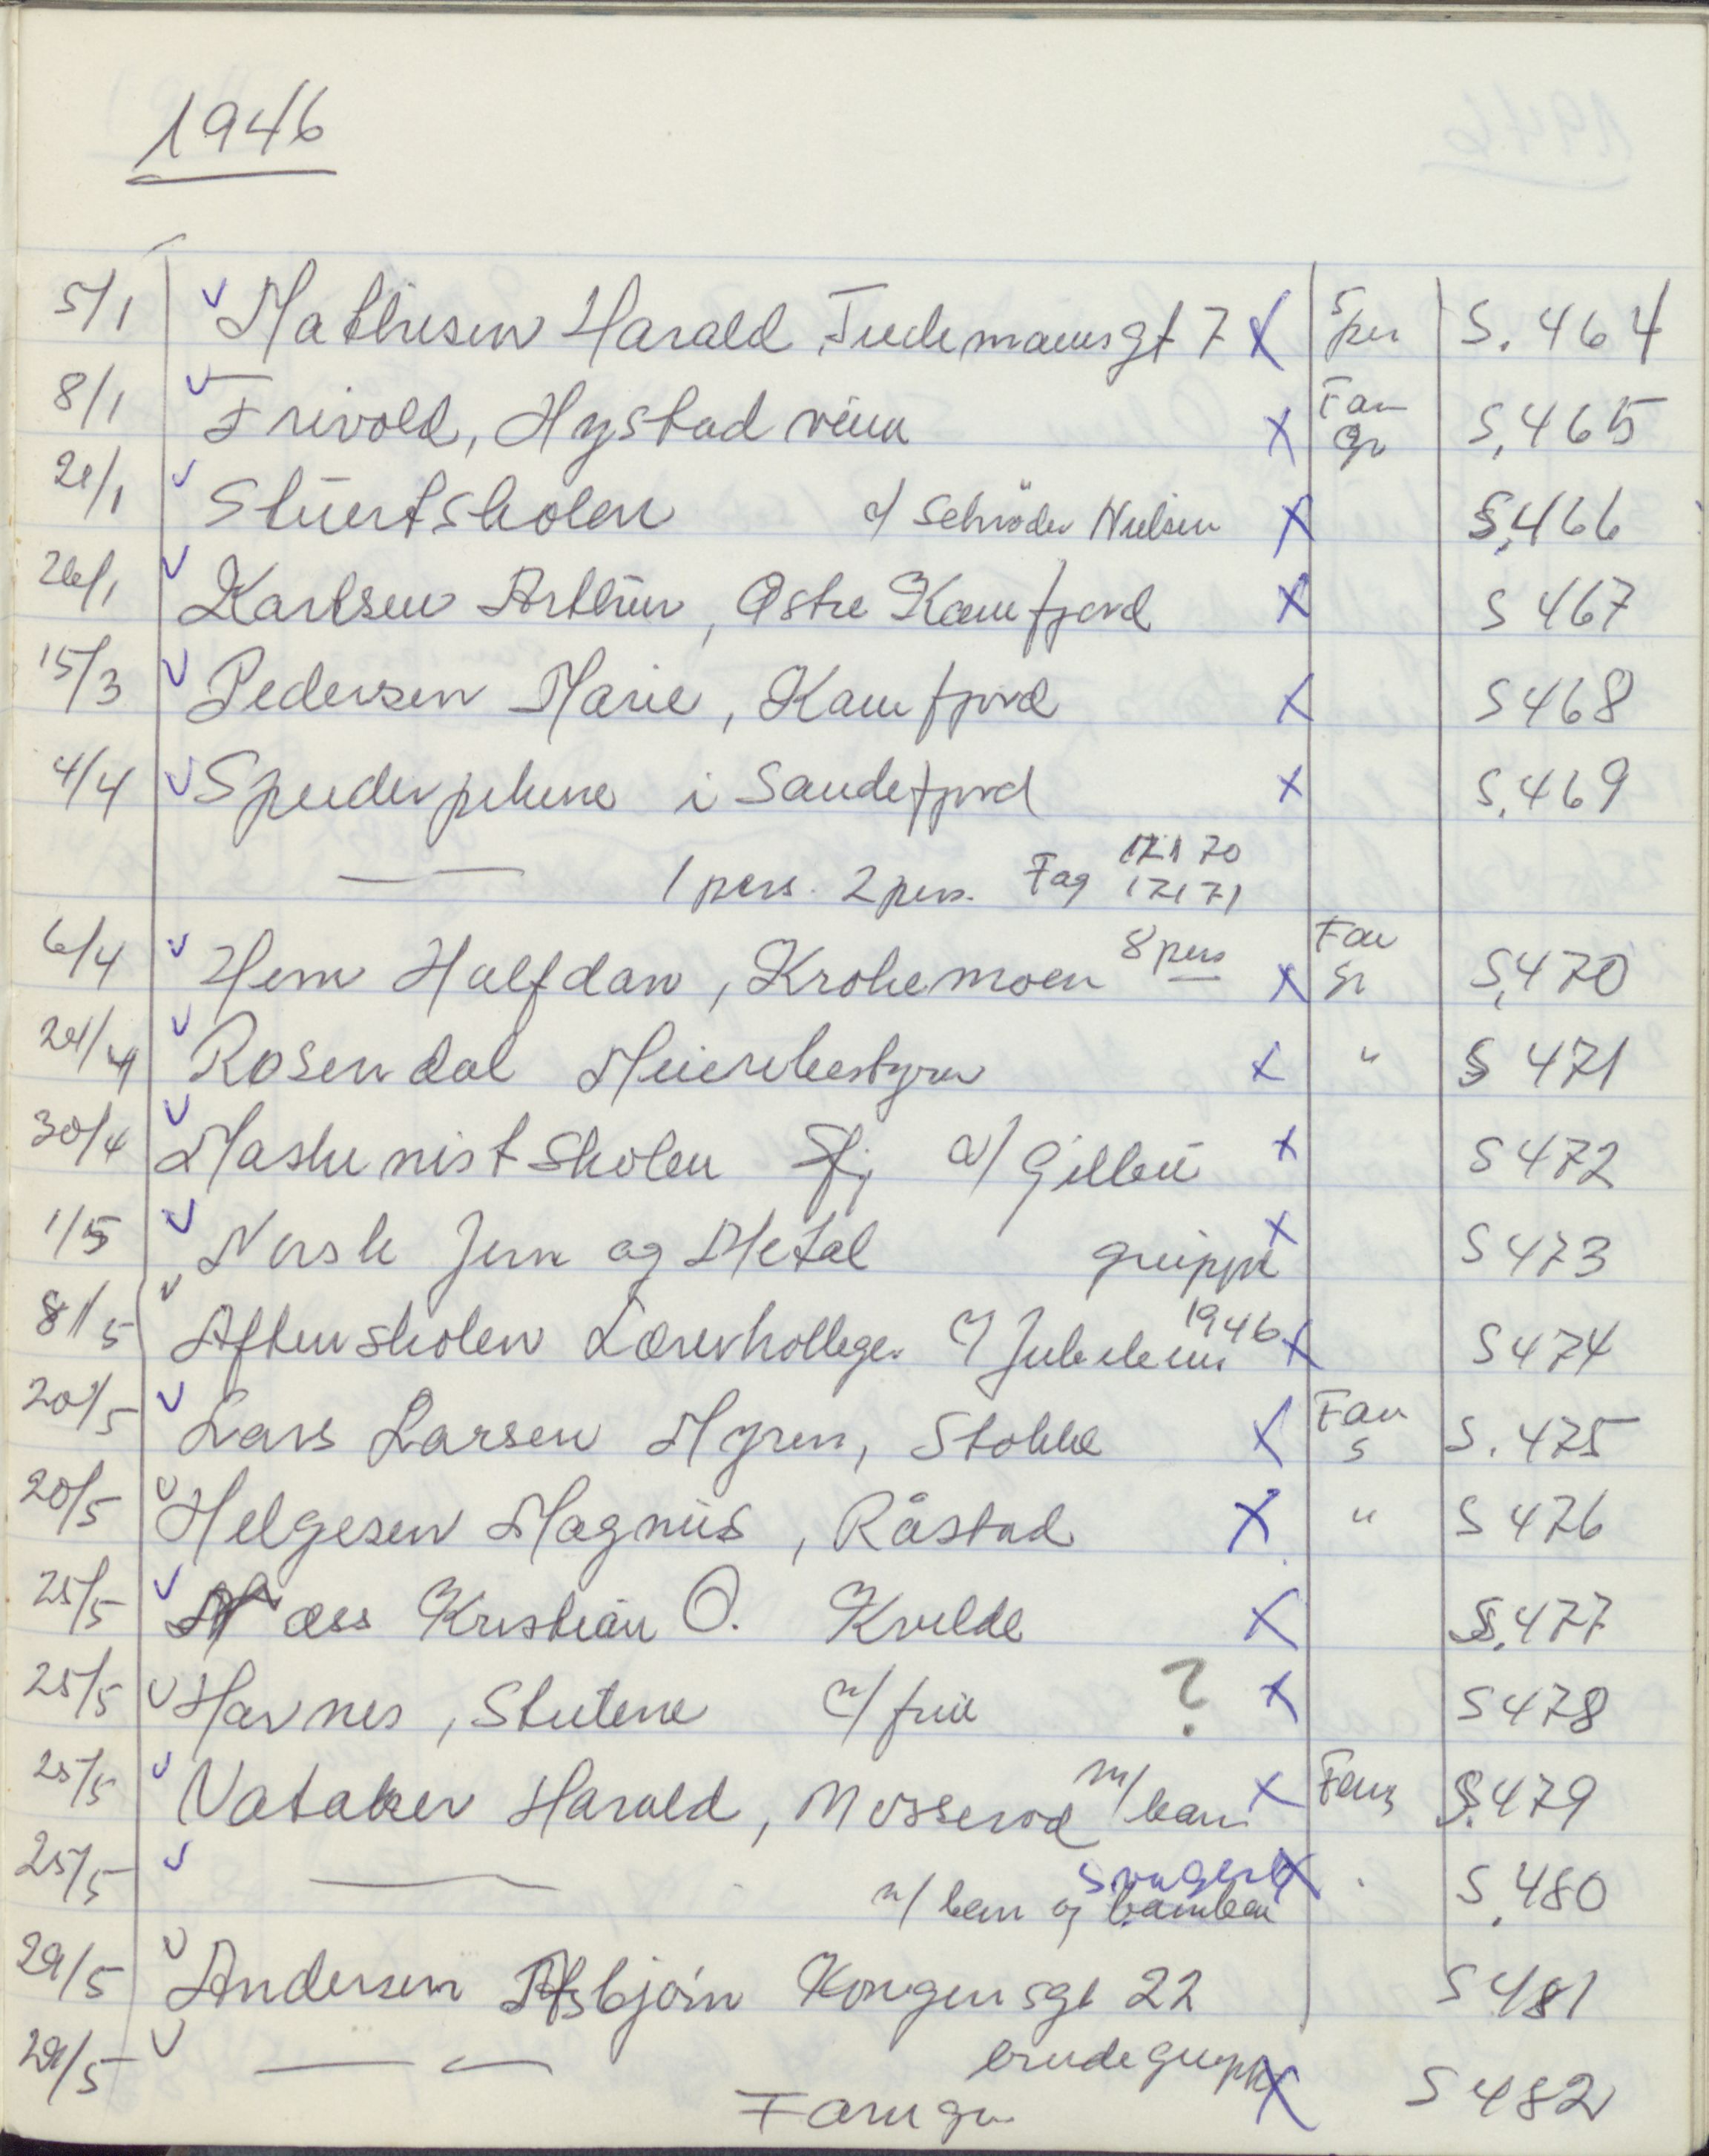 1946
5/1 Mathisen Harald, Tiedemannsgt 7 X 5 pers S. 464
8/1 Frivold, Hystad veien X Fam gr S. 465
21/1 Stuertskolen v/ Schrøder Nielsen X S. 466
26/1 Karlsen Arthur, Østre Kamfjord X S 467
15/3 Pedersen Marie, Kamfjord X S 468
4/4 Speiderpikene i Sandefjord X S. 469
1 pers. 2 pers. Fag 17170
17171
6/4 Hem Halfdan, Krokemoen 8 pers X Fam gr S. 470
24/4 Rosendal Meieribestyrer X " S 471
30/4 Maskinistskolen Sfj v/ X S 472
1/5 Norsk Jern og Metal gruppe X S 473
8/5 Aftenskolen Lærerkollege v/ Jubileum 1946 X S 474
20/5 Lars Larsen Myren, Stokke X Fam S. 475
20/5 Helgesen Magnus, Råstad X " S 476
25/5 Næss Kristian O. Kvelde X S. 477
25/5 Havnes, m/ frue ? X S 478
25/5 Nataker Harald, Mosserød m/ barn X Fam S. 479
25/5 m/ barn og barnbarn svigers X S. 480
29/5 Andersen Asbjørn Kongensgt 22 S 481
29/5 brudegruppe X S 482
Fam gr.